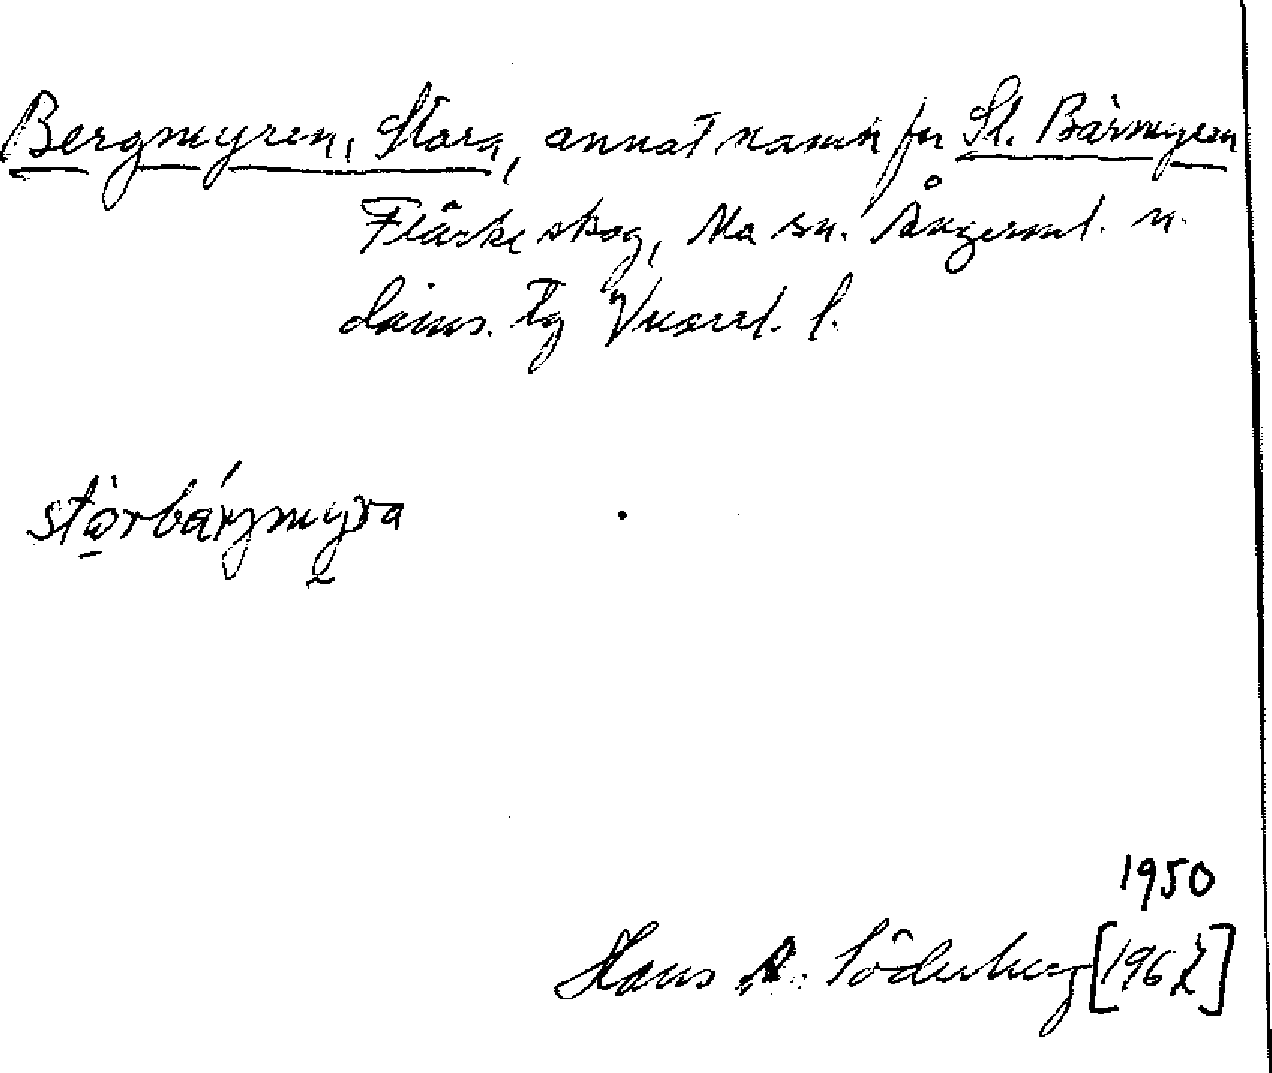 Bergmyren, Stora, annat namn för St. Bärmyren
Flärke skog, Na sn. Ångerml. n.
doms. tg Vnorrl. l.
stòrbárjmyra
1950
Hans A. Söderberg [1962]